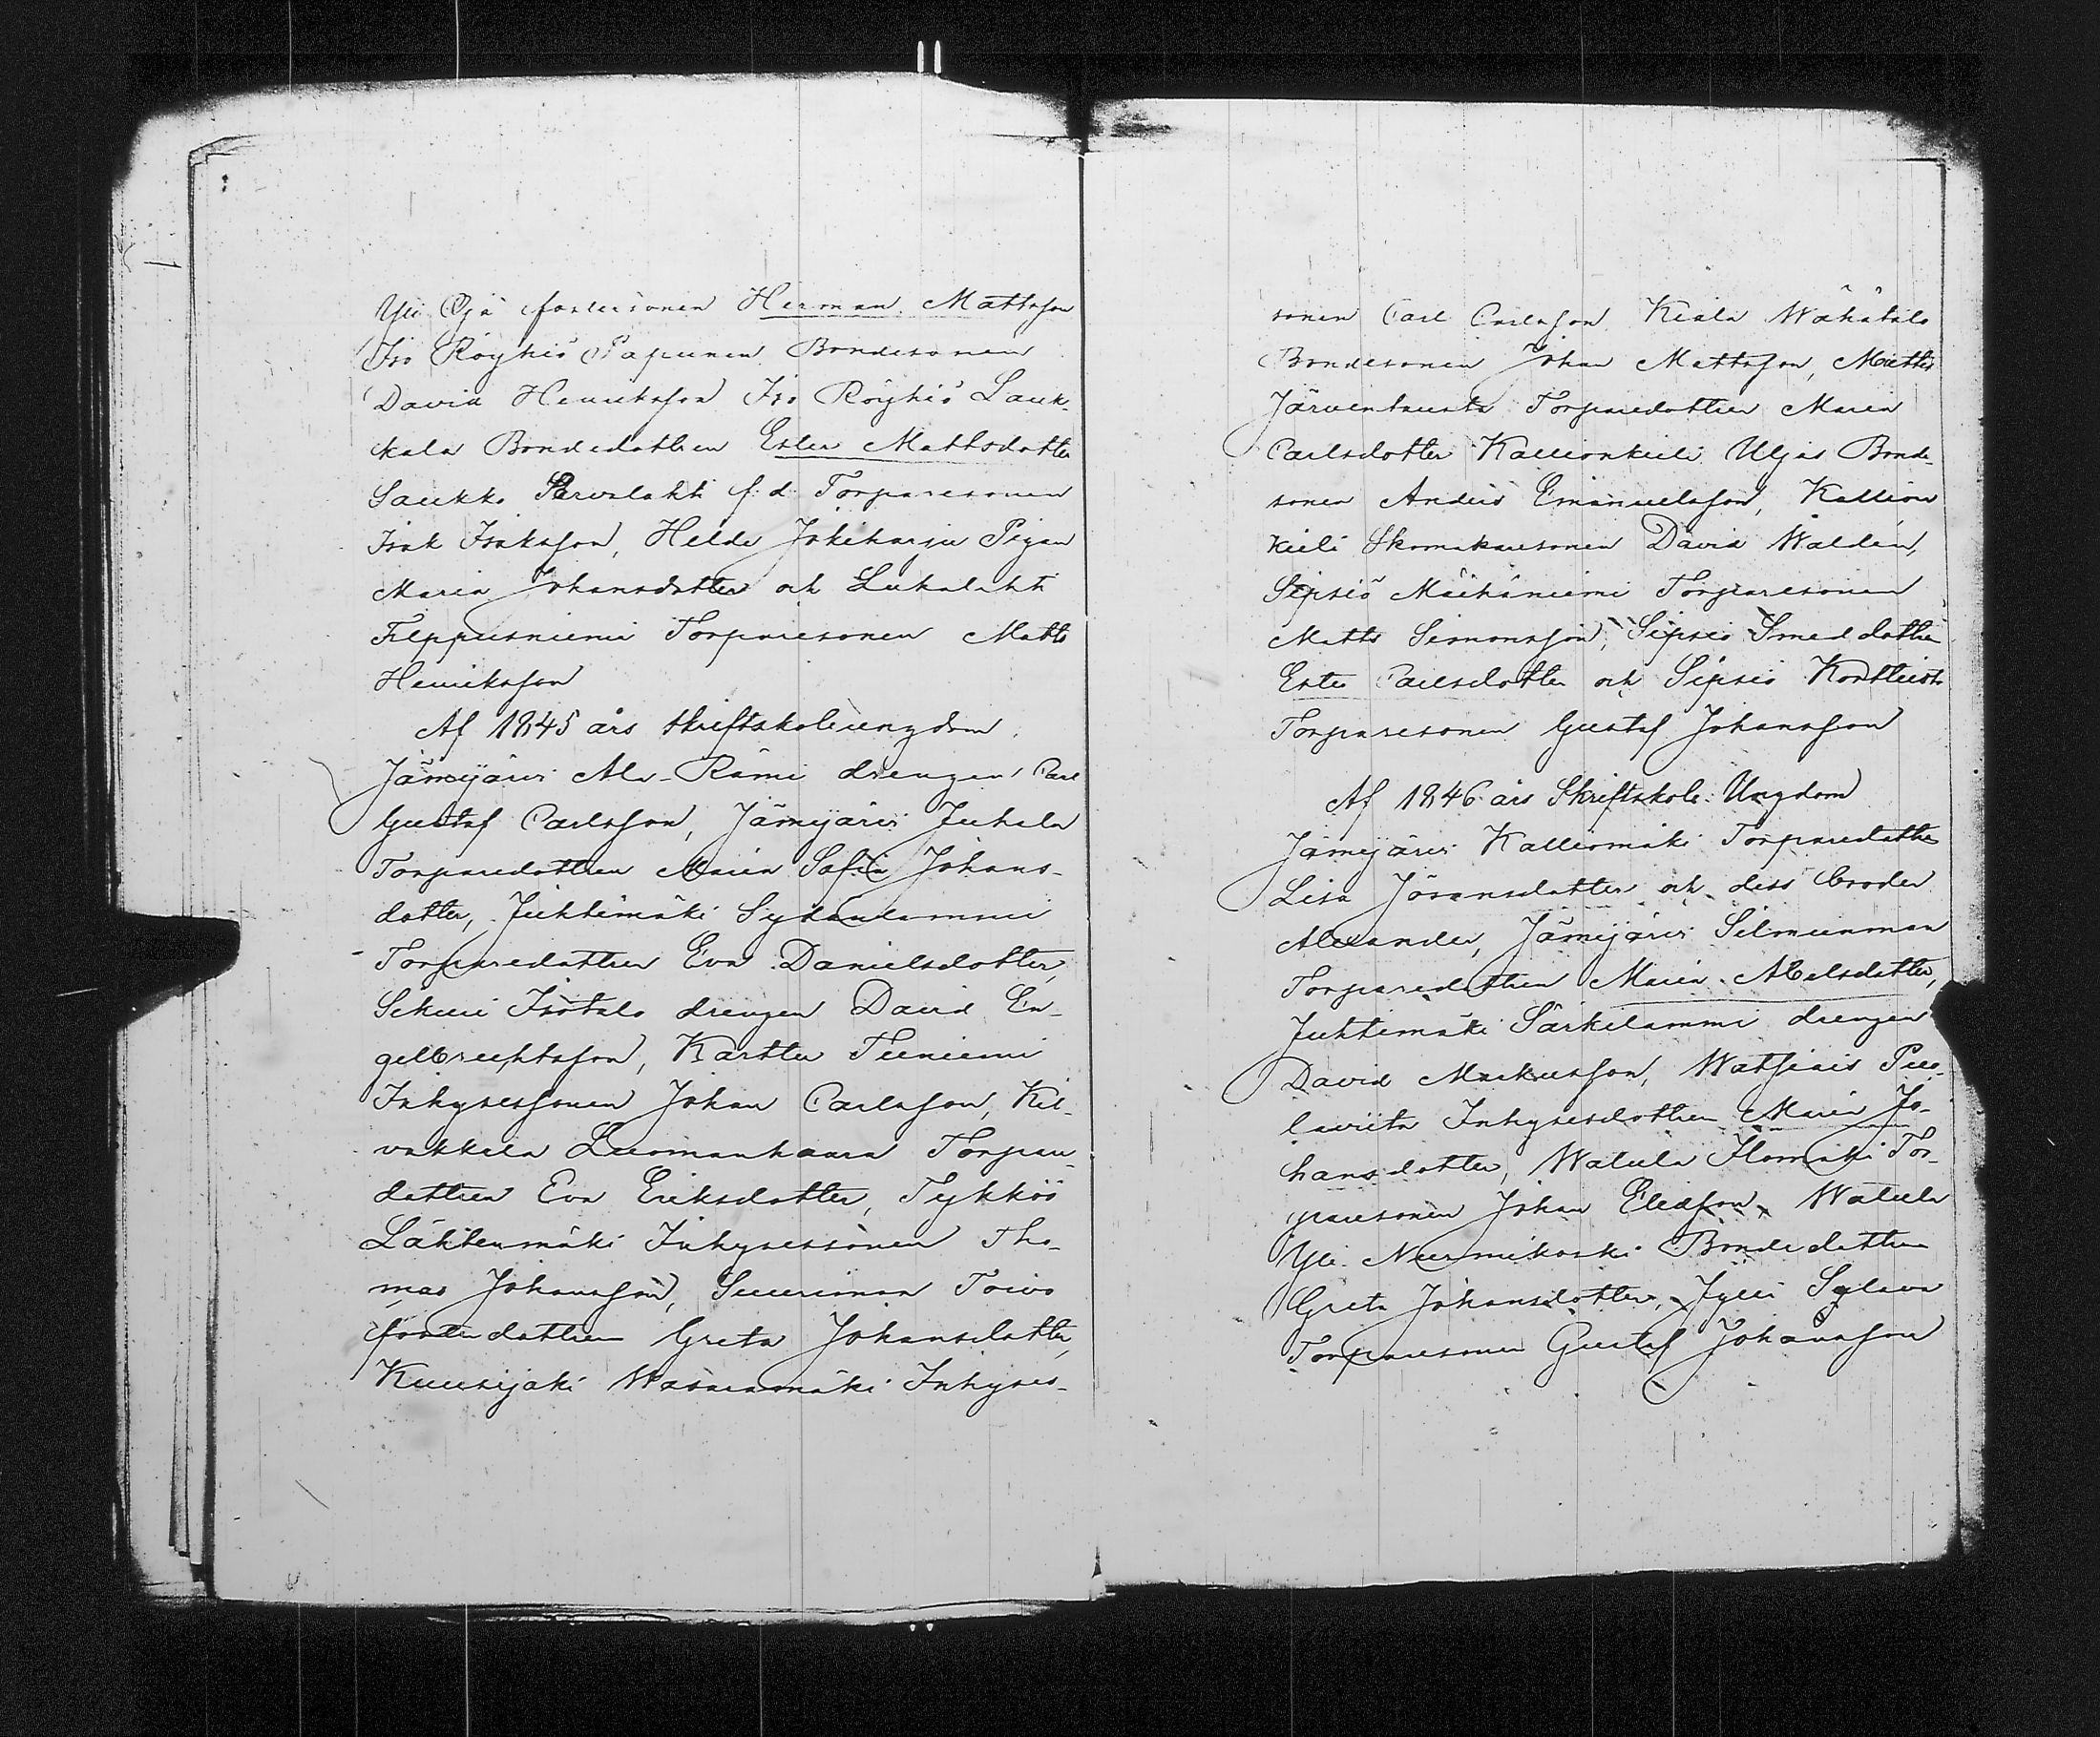 Yli Ojä fostersonen Herman Mattsson
Iso Röyhiö Papunen Bondesonen
David Henriksson Iso Röyhiö Lauk-
kala Bondedottren Ester Mattsdotter
Saukko Parvilahti f: d: Torparesonen
Isak Isaksson, Heldo Jokiharju Pigan
Maria Johansdotter och Luhalahti
Filppusniemi Torparesonen Matts
Henriksson
Af 1845 års Skriftskoleungdom.
Jämijärvi Ala-Rämi drengen Carl
Gustaf Carlsson, Jämijärvi Juhala
Torparedottren Maria Sofia Johans-
dotter, Juhtimäki Sydänlammi
Torparedottren Eva Danielsdotter,
Sikuri Isotalo drengen David En-
gelbrechtsson, Karttu Teeniemi
Inhysessonen Johan Carlsson, Kil-
vakkala Luomanhaara Torpare
dottren Eva Eriksdotter, Tykköö
Lähteenmäki Inhysessonen Tho-
mas Johansson, Suuriman Toivo
fosterdottren Greta Johansdotter,
Kuusijoki Wasaramäki Inhyses-
sonen Carl Carlsson Kiala Wähätalo
Bondesonen Johan Mattsson, Matts
Järventausta Torparedottren Maria
Carlsdotter Kallionkieli Uljas Bonde-
sonen Anders Emanuelsson, Kallion
kieli Skomakaresonen David Waldén,
Sipsiö Mäihäniemi Torparesonen
Matts Simonsson, Sipsiö Smeddottren
Ester Carlsdotter och Sipsiö Kortteisto
Torparesonen Gustaf Johansson
Af 1846 års Skriftskole-Ungdom
Jämijärvi Kalliomäki Torparedottren
Lisa Jöransdotter och dess broder
Alexander, Jämijärvi Silmunmaa
Torparedottren Maria Abelsdotter,
Juhtimäki Särkilammi drengen
David Markusson, Watsiais Puo-
lauiita Inhysesdottren Maria Jo-
hansdotter, Watula Ilomäki Tor-
paresonen Johan Eliasson, Watula
Yli Nurmikoski Bondedottren
Greta Johansdotter, Jylli Sylava
Torparesonen Gustaf Johansson